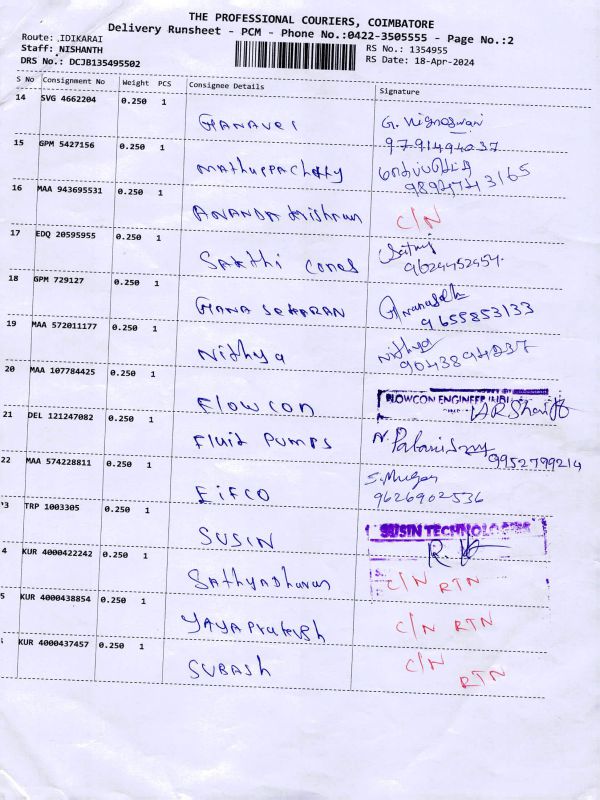 THE PROFESSIONAL COURIERS, COIMBATORE
Delivery Runsheet - PCM - Phone No.:0422-3505555 - Page No.:2
Route: IDIKARAI
RS No.: 1354955
Staff: NISHANTH
RS Date: 18-Apr-2024
DRS No.: DCJB135495502
S No Consignment No Weight PCS Consignee Details Signature
14 SVG 4662204 0.250 1
G. Vigneswari
9791494037
15 GPM 5427156 0.250 1
Mathuppachetty
16 MAA 943695531 0.250 1
Anandakrishnan C/N
17 EDQ 20595955 0.250 1
Sakthi Cones
9624452454
18 GPM 729127 0.250 1
Gana Sekaran
9655853133
19 MAA 572011177 0.250 1
Nithya Nithya
9043894237
20 MAA 107784425 0.250 1
Flowcon
21 DEL 121247082 0.250 1
Fluid Pumps N. Palanisamy
9952799214
22 MAA 574228811 0.250 1
EIFCO
9626902536
3 TRP 1003305 0.250 1
SUSIN TECHNOLOGIES
SUSIN
4 KUR 4000422242 0.250 1
Sathyadharan C/N RTN
5 KUR 4000438854 0.250 1
Jayaprakash C/N RTN
KUR 4000437457 0.250 1
SUBASh C/N RTN